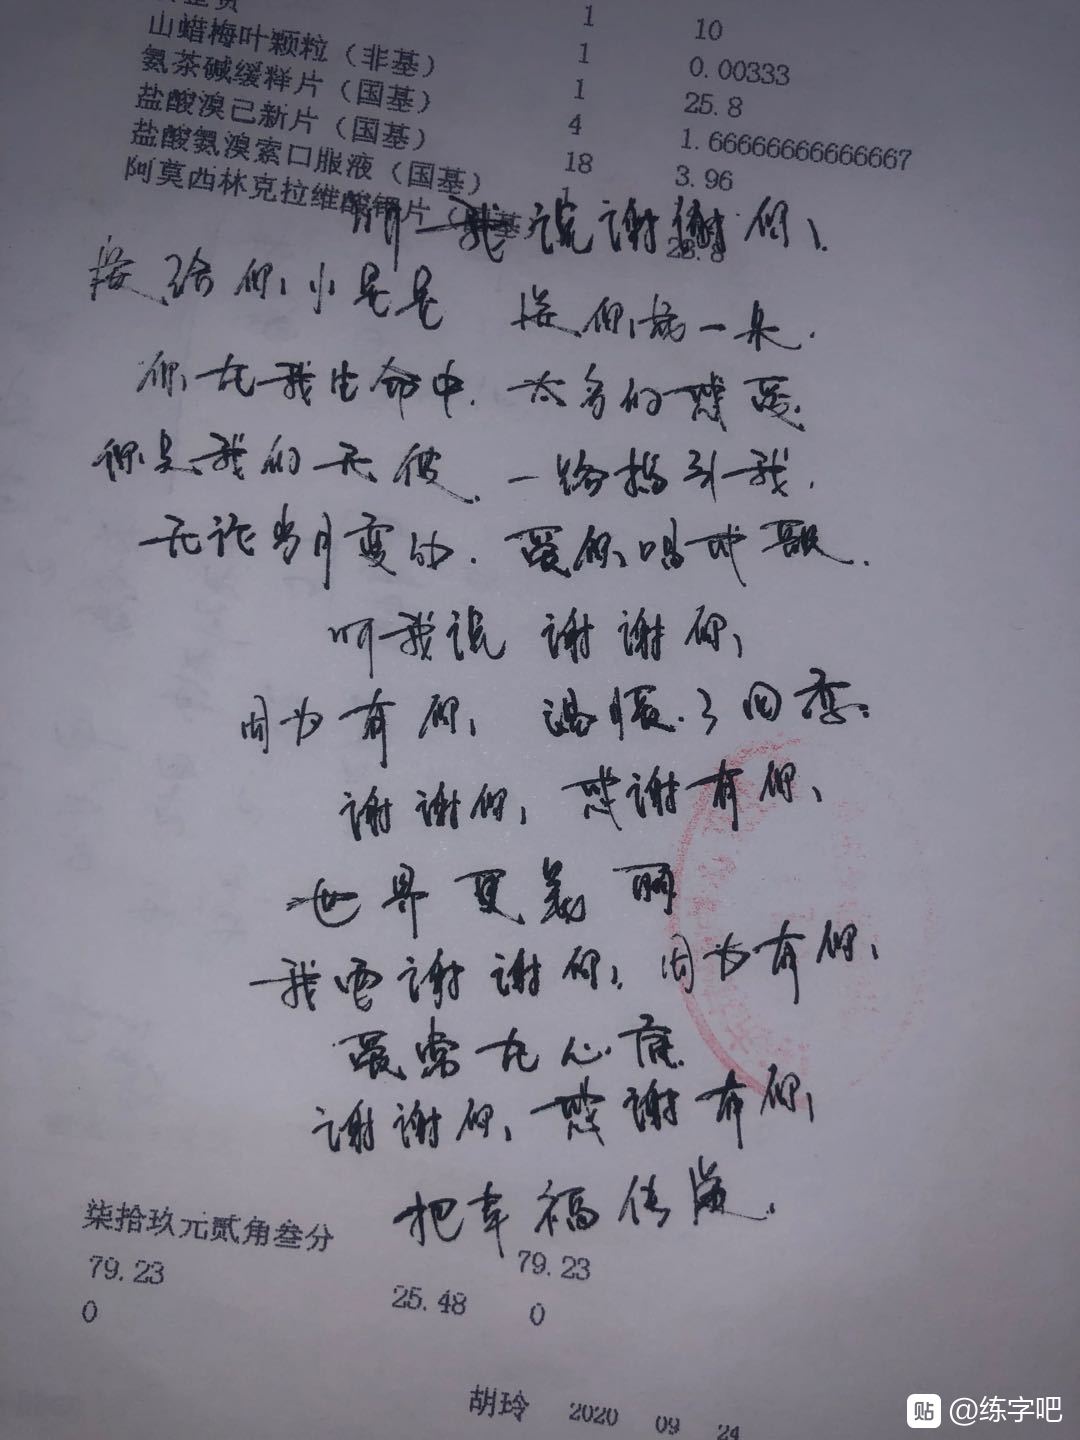 1 10
山蜡梅叶颗粒（非基） 1 0.00333
氨茶碱缓释片（国基） 1 25.8
盐酸溴己新片（国基） 4 1.66666666666667
盐酸氨溴索口服液（国基） 18 3.96
阿莫西林克拉维酸钾片（国基 1 25.8
听我说谢谢你
送给你小星星 送你花一朵
你在我生命中 太多的感
你是我的天使 一路指引我
无论岁月变幻 爱你唱成歌
听我说谢谢你
因为有你 温暖了四季
谢谢你 感谢有你
世界更美丽
我要谢谢你 因为有你
爱常在心底
谢谢你 感谢有你
把幸福传递
柒拾玖元贰角叁分
79.23 25.48 79.23
0 0
胡玲 2020 09 24
贴 @练字吧